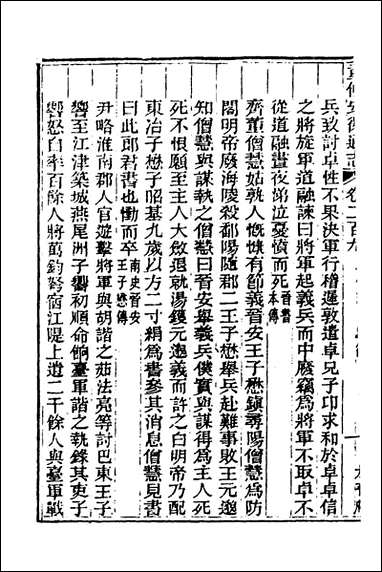 重修安徽通志 卷二百九
兵致討卓性不果決軍行稽遲敦遣卓兄子印求和於卓卓信
之將旋軍道融諫曰將軍起義兵而中廢竊為將軍不取卓不
從道融晝夜涕泣憂憤而死晉書本傳
齊董僧慧姑孰人慨慷有節義晉安王子懋鎮尋陽僧慧為防
閤明帝廢海陵殺鄱陽隨郡二王子懋舉兵赴難事敗王元邈
知僧慧與謀執之僧慧曰晉安舉義兵僕實與謀得為主人死
死不恨願至主人大斂退就湯鑊元邈義而許之白明帝乃配
東冶子懋子昭基九歲以方二寸絹為書參其消息僧慧見書
曰此郎君書也慟而卒南史晉安王子懋傳
尹略淮南郡人官遊擊將軍與胡諧之茹法亮等討巴東王子
響至江津築城燕尾洲子響初順命餉臺軍諧之執錄其吏子
響怒白率百餘人將萬鈞弩宿江隄上遣二千餘人與臺軍戰